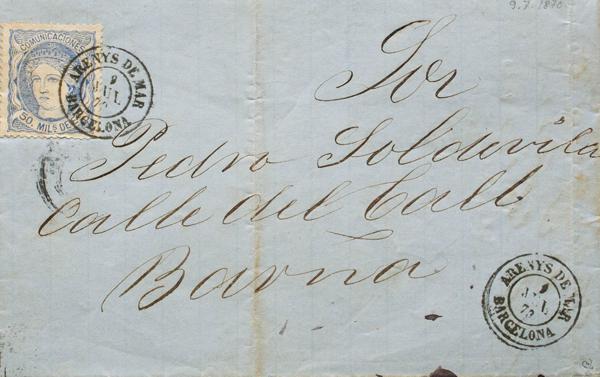 9.7.1870
COMUNICACIONES
50 MILS DE
ARENYS DE MAR
9
JUL
BARCELONA
Sor
Pedro Soldevila
Calle del Call
Barna
ARENYS DE MAR
9
JUL
70
BARCELONA